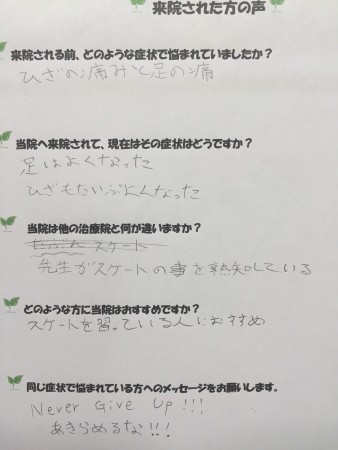 来院された方の声
来院される前、どのような症状で悩まれていましたか？
ひざの痛みと足の痛
当院へ来院されて、現在はその症状はどうですか？
足はよくなった
ひざもだいぶよくなった
当院は他の治療院と何が違いますか？
スケート
先生がスケートの事を熟知している
どのような方に当院はおすすめですか？
スケートを習っている人におすすめ
同じ症状で悩まれている方へのメッセージをお願いします。
Never Give Up!!!
あきらめるな!!!